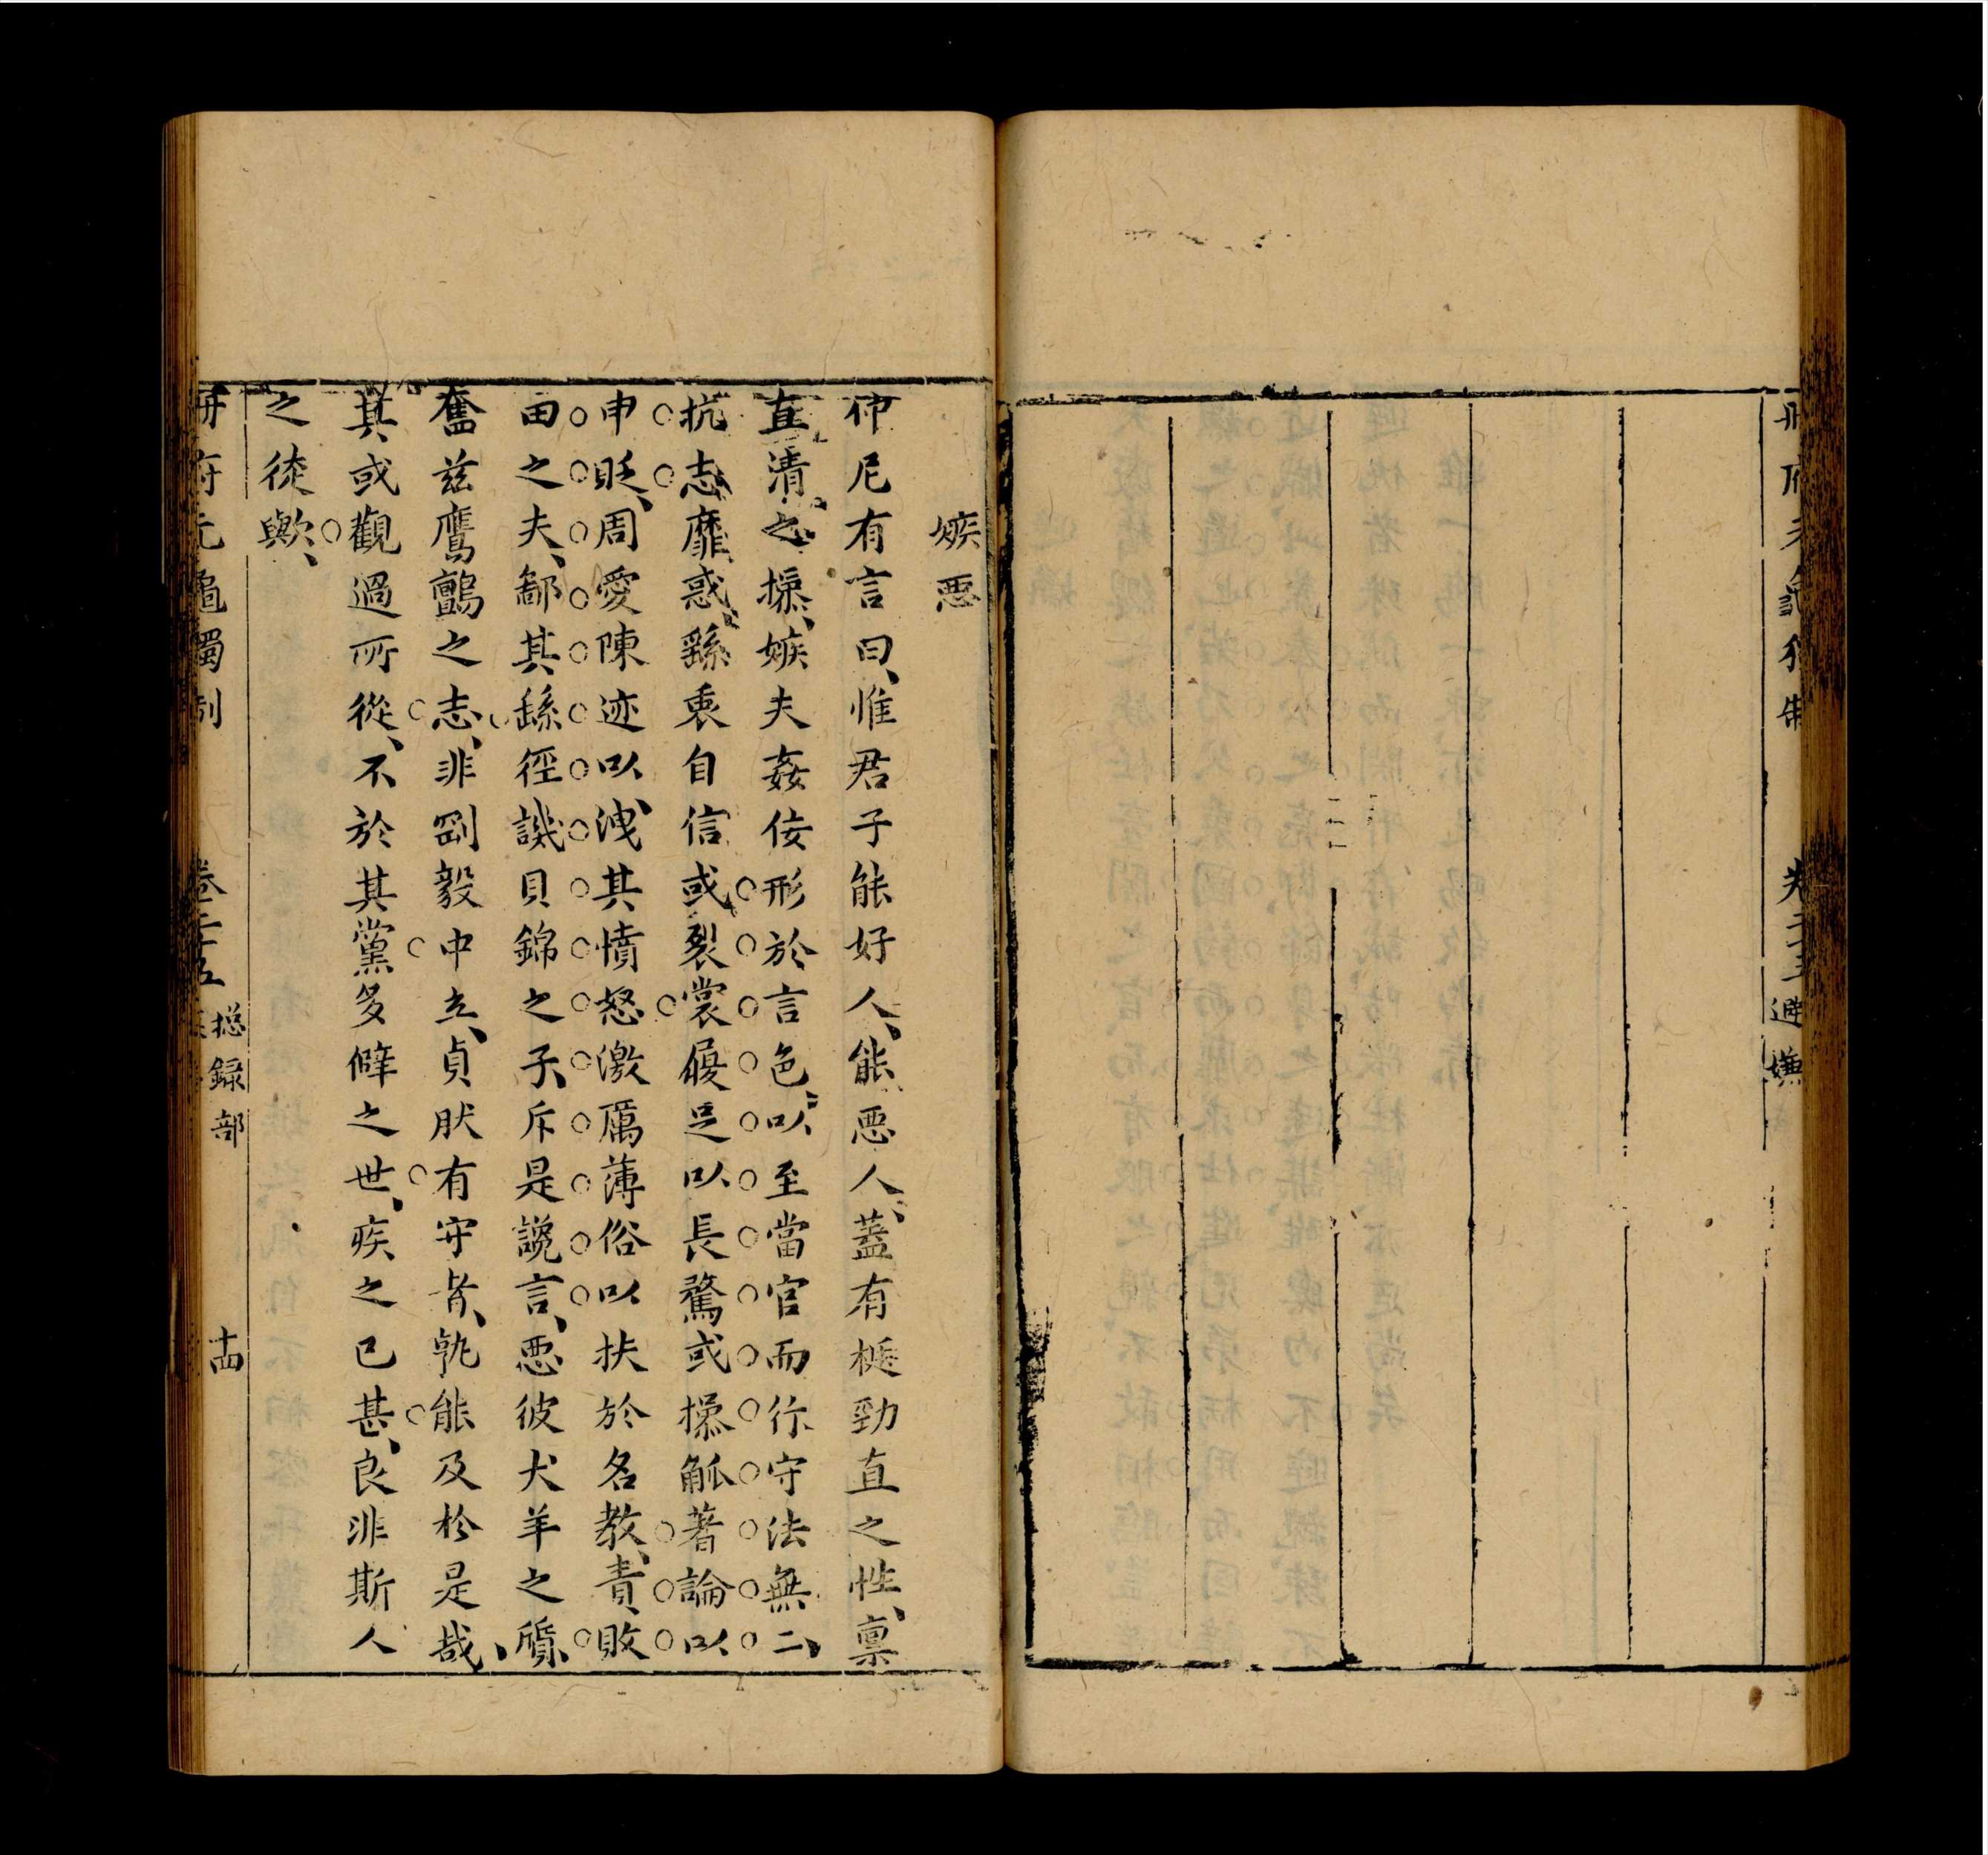 冊府元龜獨制 卷二十五 避嫌
嫉惡
仲尼有言曰、惟君子能好人、能惡人、蓋有梃勁直之性、稟
直清之操、嫉夫姦佞形於言色、以至當官而行守法無二、
抗志靡惑、繇衷自信或裂裳履足以長騖或操觚著論以
申貶、周爰陳迹以洩其憤怒激厲薄俗以扶於名教、責敗
田之夫、鄙其繇徑譏貝錦之子、斥是讒言、惡彼犬羊之質、
奮茲鷹鸇之志、非剛毅中立、貞肰有守者、孰能及於是哉、
其或觀過所從、不於其黨多僻之世、疾之已甚、良非斯人
之徒歟、
冊府元龜獨制 卷二十五 總錄部 十四